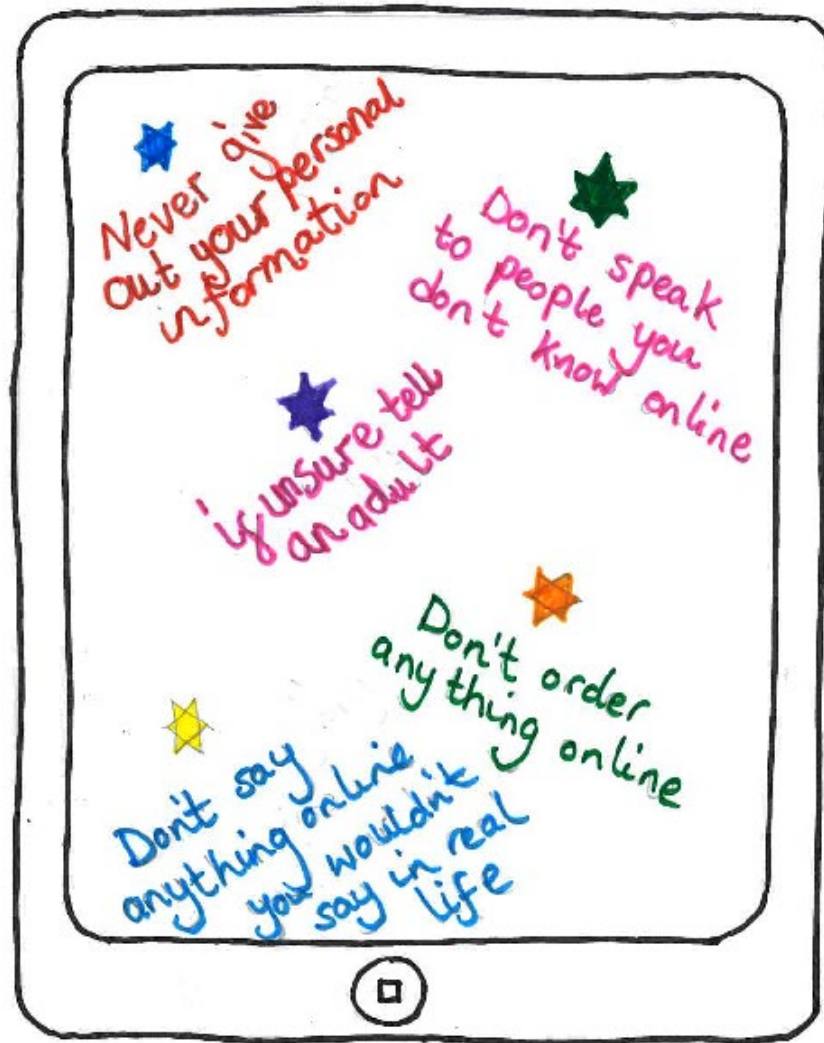 Never give
out your personal
information
Don't speak
to people you
don't know online
if unsure tell
an adult
Don't order
anything online
Don't say
anything online
you wouldn't
say in real
life